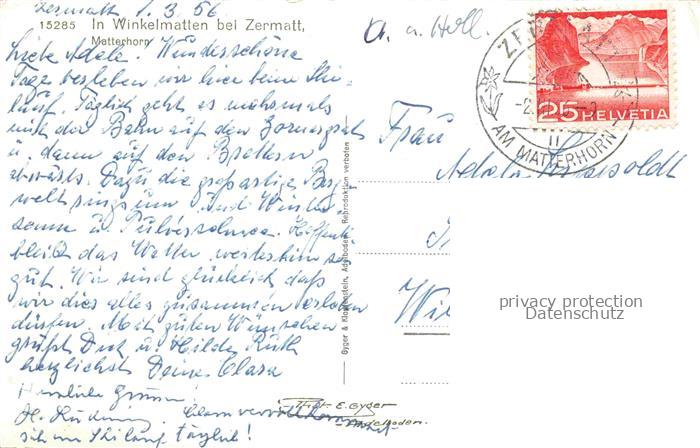 Zermatt 1.3.56.
15285 In Winkelmatten bei Zermatt,
Matterhorn
Liebe Adele. Wunderschöne
Tage verleben wir hier beim Ski-
lauf. Täglich geht es mehrmals
mit der Bahn auf den Gornergrat
u. dann auf den Brettern
abwärts. Dazu die großartige Berg-
welt ringsum und Winter-
sonne u. Pulverschnee. Hoffentl.
bleibt das Wetter weiterhin so
gut. Wir sind glücklich daß
wir dies alles zusammen erleben
dürfen. Mit guten Wünschen
grüßt Dich u. Hilde, Ruth
herzlichst Deine Clara
Herzliche Grüsse!
täglich!
Gyger & Klopfenstein, Adelboden. Reproduktion verboten
Phot. E. Gyger
Adelboden.
Frau
Adele
25 HELVETIA
AM MATTERHORN
privacy protection
Datenschutz